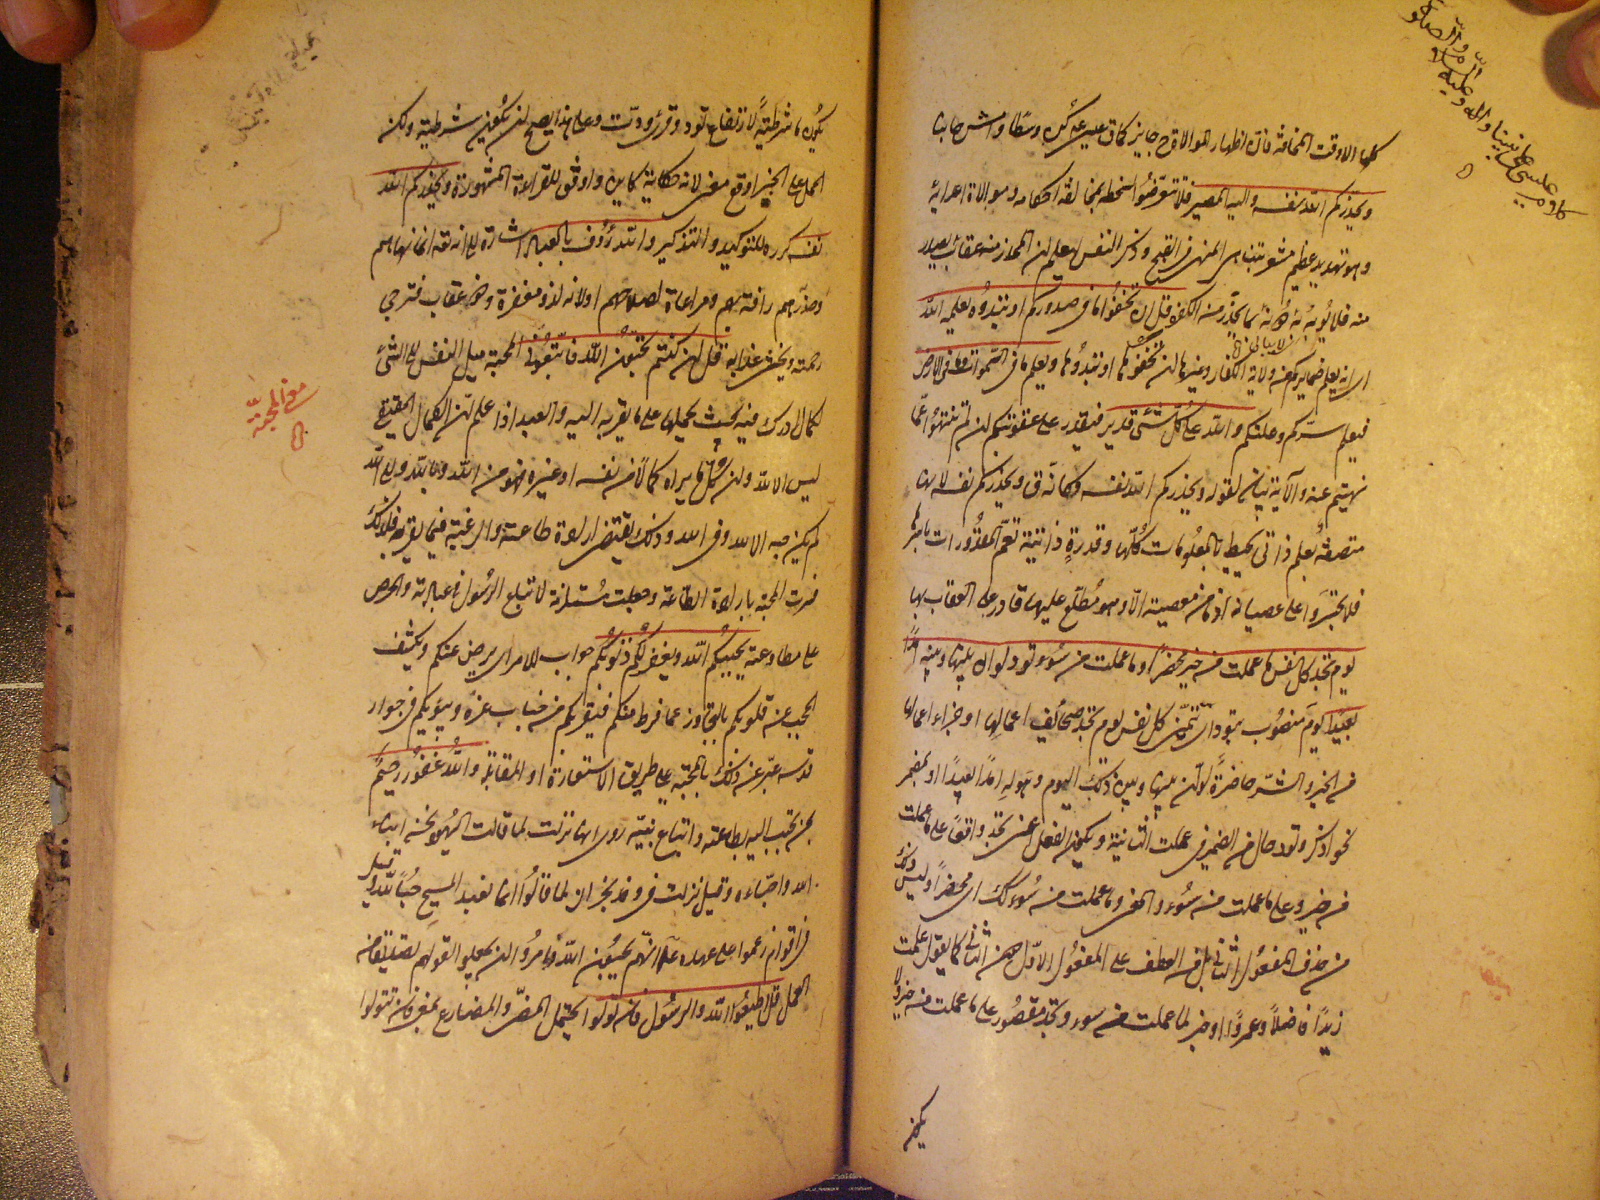 كلها الا وقت المخافة فان اظهار الموالاة ح جايز كما قال عيسى كن وسطا وامش جانبا
ويحذركم الله نفسه والى الله المصير فلا تتعرضوا لسخطه بمخالفة احكامه وموالاة اعدائه
وهو تهديد عظيم مشعر بتناهى المنهى فى القبح وذكر النفس ليعلم ان المحذر منه عقاب يصدر
منه فلا يؤبه دونه بما يحذر من الكفرة قل ان تخفوا ما فى صدوركم او تبدوه يعلمه الله
اى انه يعلم ضمايركم من ولاية الكفار وغيرها ان تخفوها او تبدوها ويعلم ما فى السموات وما فى الارض
فيعلم سركم وعلنكم والله على كل شئ قدير فيقدر على عقوبتكم ان لم تنتهوا عما
نهيتم عنه والآية بيان لقوله ويحذركم الله نفسه فكانه ق ويحذركم نفسه لانها
متصفة بعلم ذاتى يحيط بالمعلومات كلها وقدرة ذاتية تعم المقدورات باسرها
فلا تجسروا على عصيانه اذ ما من معصية الا وهو مطلع عليها قادر على العقاب بها
يوم تجد كل نفس ما عملت من خير محضرا وما عملت من سوء تود لو ان بينها وبينه امدا
بعيدا يوم منصوب بتود اى تتمنى كل نفس يوم تجد صحائف اعمالها او جزاء اعمالها
من الخير والشر حاضرة لو ان بينها وبين ذلك اليوم وهوله امدا بعيدا او بمضمر
نحو اذكر وتود حال من الضمير فى عملت الثانية ويكون الفعل اعنى تجد واقعا على ما عملت
من خير وعلى ما عملت من سوء والمعنى وما عملت من سوء كك اى محضرا وليس ذلك
من حذف المفعول الثانى بل من العطف على المفعول الاول حصن الثانى كما يقول علمت
زيدا فاضلا وعمروا او خبر لما عملت من سوء وتجد مقصور على ما عملت من خير ولا
يكون
كان عيسى على نبينا واله وعليه السلام والصلوة
يكون ما شرطية لارتفاع تود وقرئ ودت وعلى هذا يصح ان يكون شرطية ولكن
الحمل على الخبر اوقع معنى لانه حكاية كاين واوفق للقراءة المشهورة ويحذركم الله
نفسه كرره للتوكيد والتذكير والله رؤوف بالعباد اشارة الى انه تعه انما نهاهم
وحذرهم رافة بهم ومراعاة لصلاحهم او لانه لذو مغفرة وذو عقاب فترجى
رحمته ويخشى عذابه قل ان كنتم تحبون الله فاتبعونى المحبة ميل النفس الى الشئ
لكمال ادرك فيه بحيث يحملها على ما يقربه اليه والعبد اذا علم ان الكمال الحقيقى
ليس الا لله وان كل ما يراه كمالا من نفسه او غيره فهو من الله وبالله والى الله
لم يكن حبه الا لله وفى الله وذلك يقتضى ارادة طاعته والرغبة فيما يقربه فلذلك
فسرت المحبة بارادة الطاعة وجعلت مستلزمة لاتباع الرسول فى عبادته والحرص
على مطاوعته يحببكم الله ويغفر لكم ذنوبكم جواب للامر اى يرض عنكم ويكشف
الحجب عن قلوبكم بالتجاوز عما فرط منكم فيقربكم من جناب عزه ويبؤيكم فى جوار
قدسه عبر عن ذلك بالمحبة على طريق الاستعارة او المقابلة والله غفور رحيم
لمن تحبب اليه بطاعته واتباع نبيه روى انها نزلت لما قالت اليهود نحن ابناء
الله واحباءه وقيل نزلت فى وفد نجران لما قالوا انما نعبد المسيح حبا لله وقيل
فى اقوام زعموا على عهده ع انهم يحبون الله فامروا ان يجعلوا لقولهم تصديقا من
العمل قل اطيعوا الله والرسول فان تولوا يحتمل المضى والمضارع بمعنى فان تتولوا
معنى المحبة